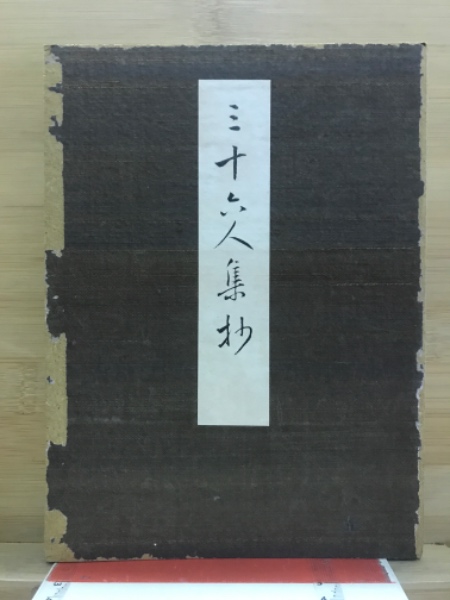 三十六人集抄